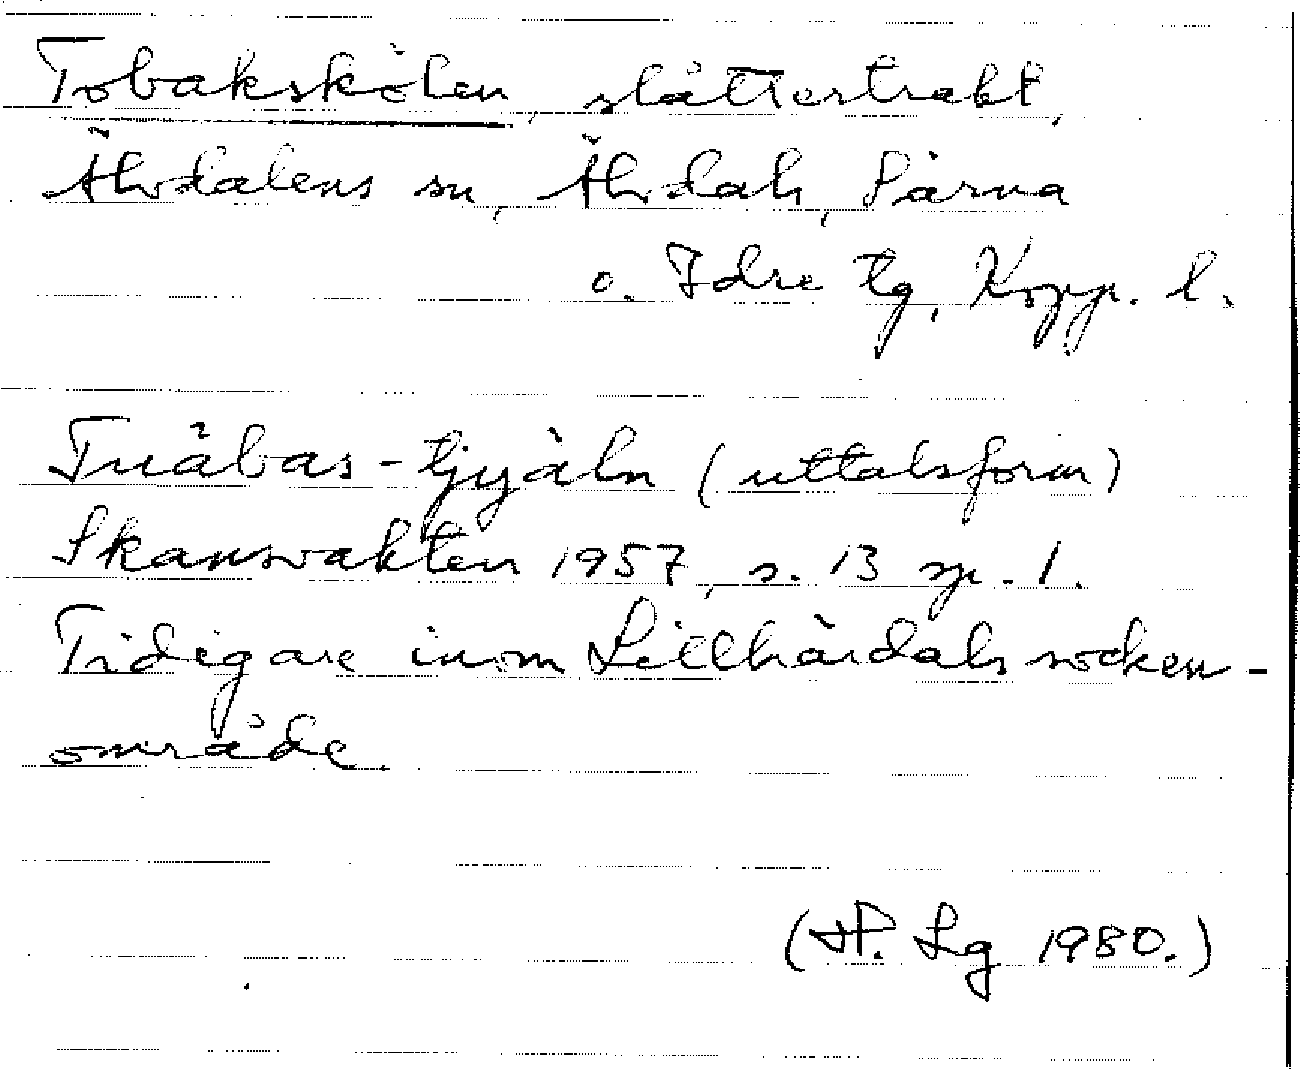 Tobakskölen, slåttertrakt,
Älvdalens sn, Älvdals, Särna
o. Idre tg, Kopp. l.
Tuåbas-tjyäln (uttalsform)
Skansvakten 1957, s. 13 sp. 1.
Tidigare inom Lillhärdals socken-
område.
(H. Lg 1980.)